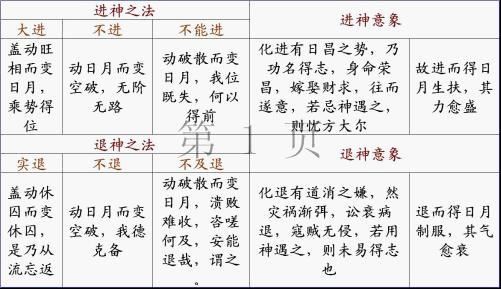 进神之法
进神意象
大进
不进
不能进
盖动旺
相而变
日月，
乘势得
位
动日月而变
空破，无阶
无路
动破散而变
日月，我位
既失，何以
得前
化进有日昌之势，乃
功名得志，身命荣
昌，嫁娶财求，往而
遂意，若忌神遇之，
则忧方大尔
故进而得日
月生扶，其
力愈盛
第 1 页
退神之法
退神意象
实退
不退
不及退
盖动休
囚而变
休囚，
是乃从
流忘返
动日月而变
空破，我德
克备
动破散而变
日月，溃败
难收，咨嗟
何及，安能
退哉，谓之
。
化退有道消之嫌，然
灾祸渐弭，讼衰病
退，寇贼无侵，若用
神遇之，则未易得志
也
退而得日月
制服，其气
愈衰